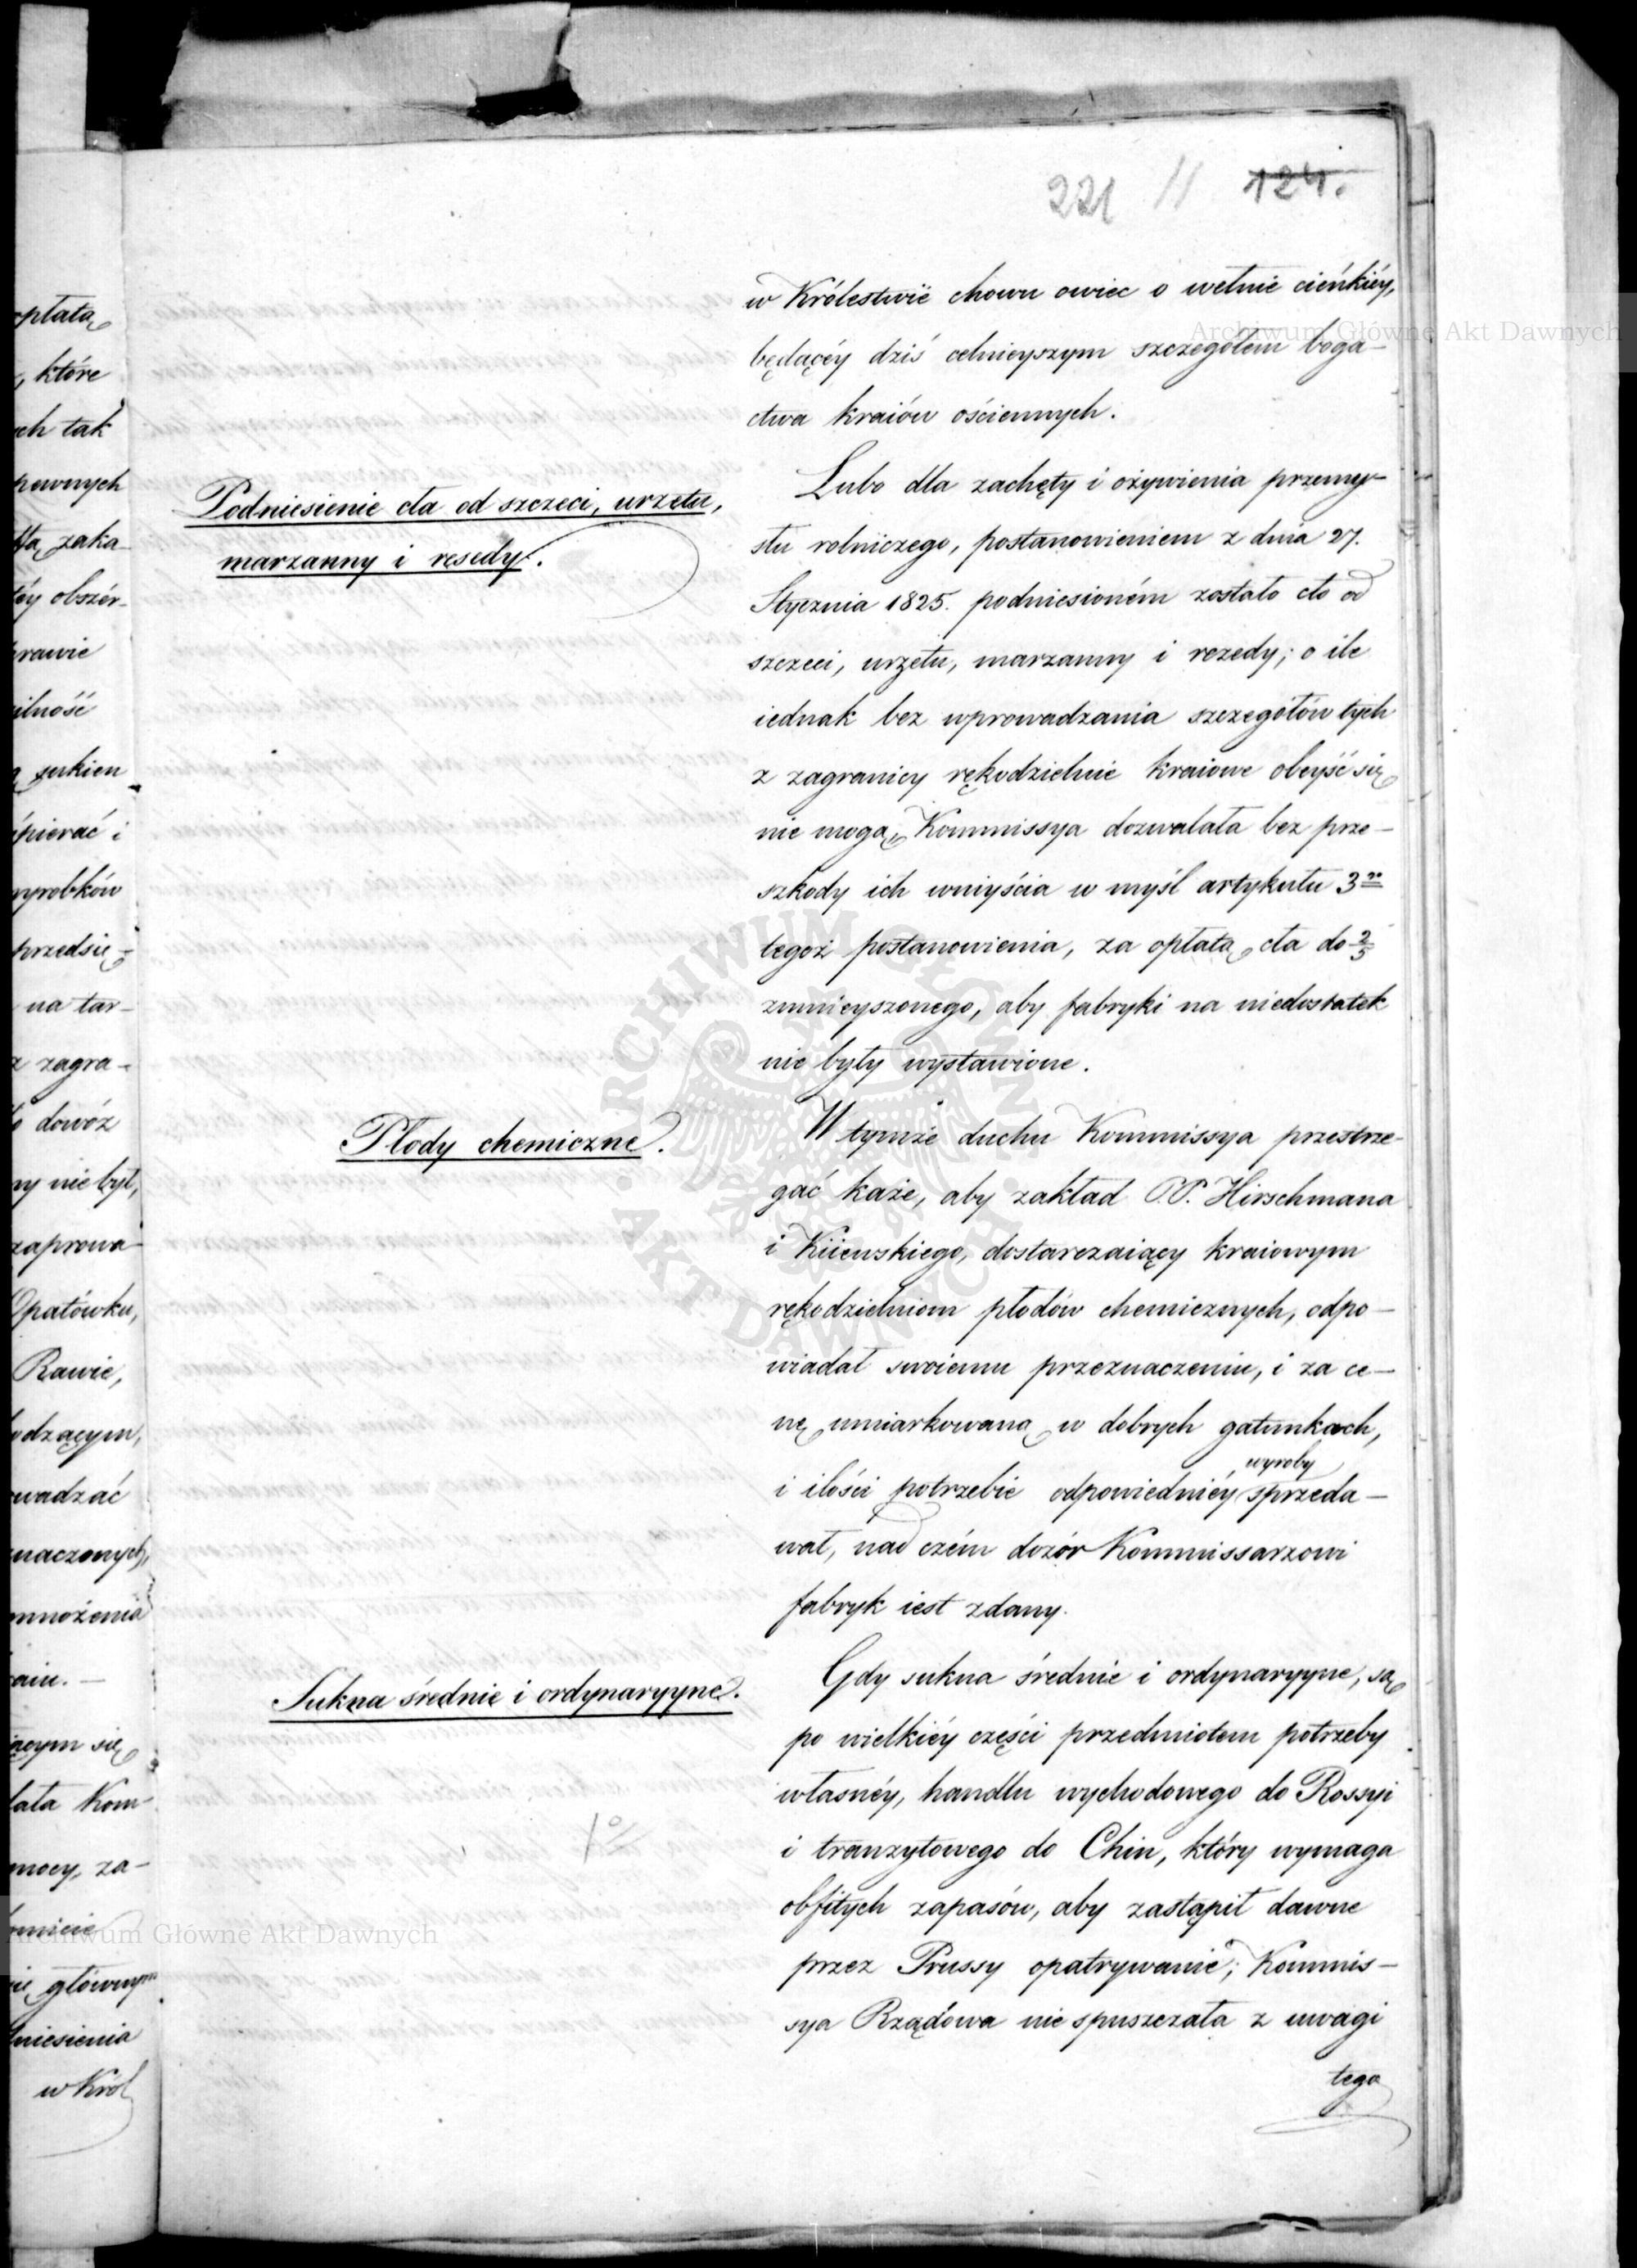 221 // 124.
w Królestwie chowu owiec o wełnie cieńkiéy,
będącéy dziś celnieyszym szczegółem boga-
ctwa kraiów ościennych.
Podniesienie cła od szczeci, urzetu,
marzanny i resedy.
Lubo dla zachęty i ożywienia przemy-
słu rolniczego, postanowieniem z dnia 27.
Stycznia 1825. podniesioném zostało cło od
szczeci, urzetu, marzanny i rezedy; o ile
iednak bez wprowadzania szczegółów tych
z zagranicy rękodzielnie kraiowe obeyść się
nie mogą, Kommissya dozwalała bez prze-
szkody ich wniyścia w myśl artykułu 3go
tegoż postanowienia, za opłatą cła do 2/5
zmnieyszonego, aby fabryki na niedostatek
nie były wystawione.
Płody chemiczne.
W tymże duchu Kommissya przestrze-
gać każe, aby zakład P.P. Hirschmana
i Kiiewskiego, dostarczaiący kraiowym
rękodzielniom płodów chemicznych, odpo-
wiadał swoiemu przeznaczeniu, i za ce-
nę umiarkowaną w dobrych gatunkach,
i ilości potrzebie odpowiedniéy wyroby sprzeda-
wał, nad czém dozór Kommissarzowi
fabryk iest zdany.
Sukna średnie i ordynaryyne.
Gdy sukna średnie i ordynaryyne, są
po wielkiéy części przedmiotem potrzeby
własnéy, handlu wychodowego do Rossyi
i tranzytowego do Chin, który wymaga
obfitych zapasów, aby zastąpił dawne
przez Prussy opatrywanie; Kommis-
sya Rządowa nie spuszczała z uwagi
tego
opłatą
, które
ch tak
pewnych
zaka-
éy obszér-
rawie
ilność
sukien
pierać i
wyrobków
przedsię-
na tar-
z zagra-
dowóz
ny nie był,
zaprowa-
Opatówku,
Rawie,
odzącym,
wadzać
naczonych,
mnożenia
aiu. -
iącym się
łała Kom-
mocy, za-
głównym
niesienia
w Król
Archiwum Główne Akt Dawnych
ARCHIWUM GŁÓWNE AKT DAWNYCH
Archiwum Główne Akt Dawnych